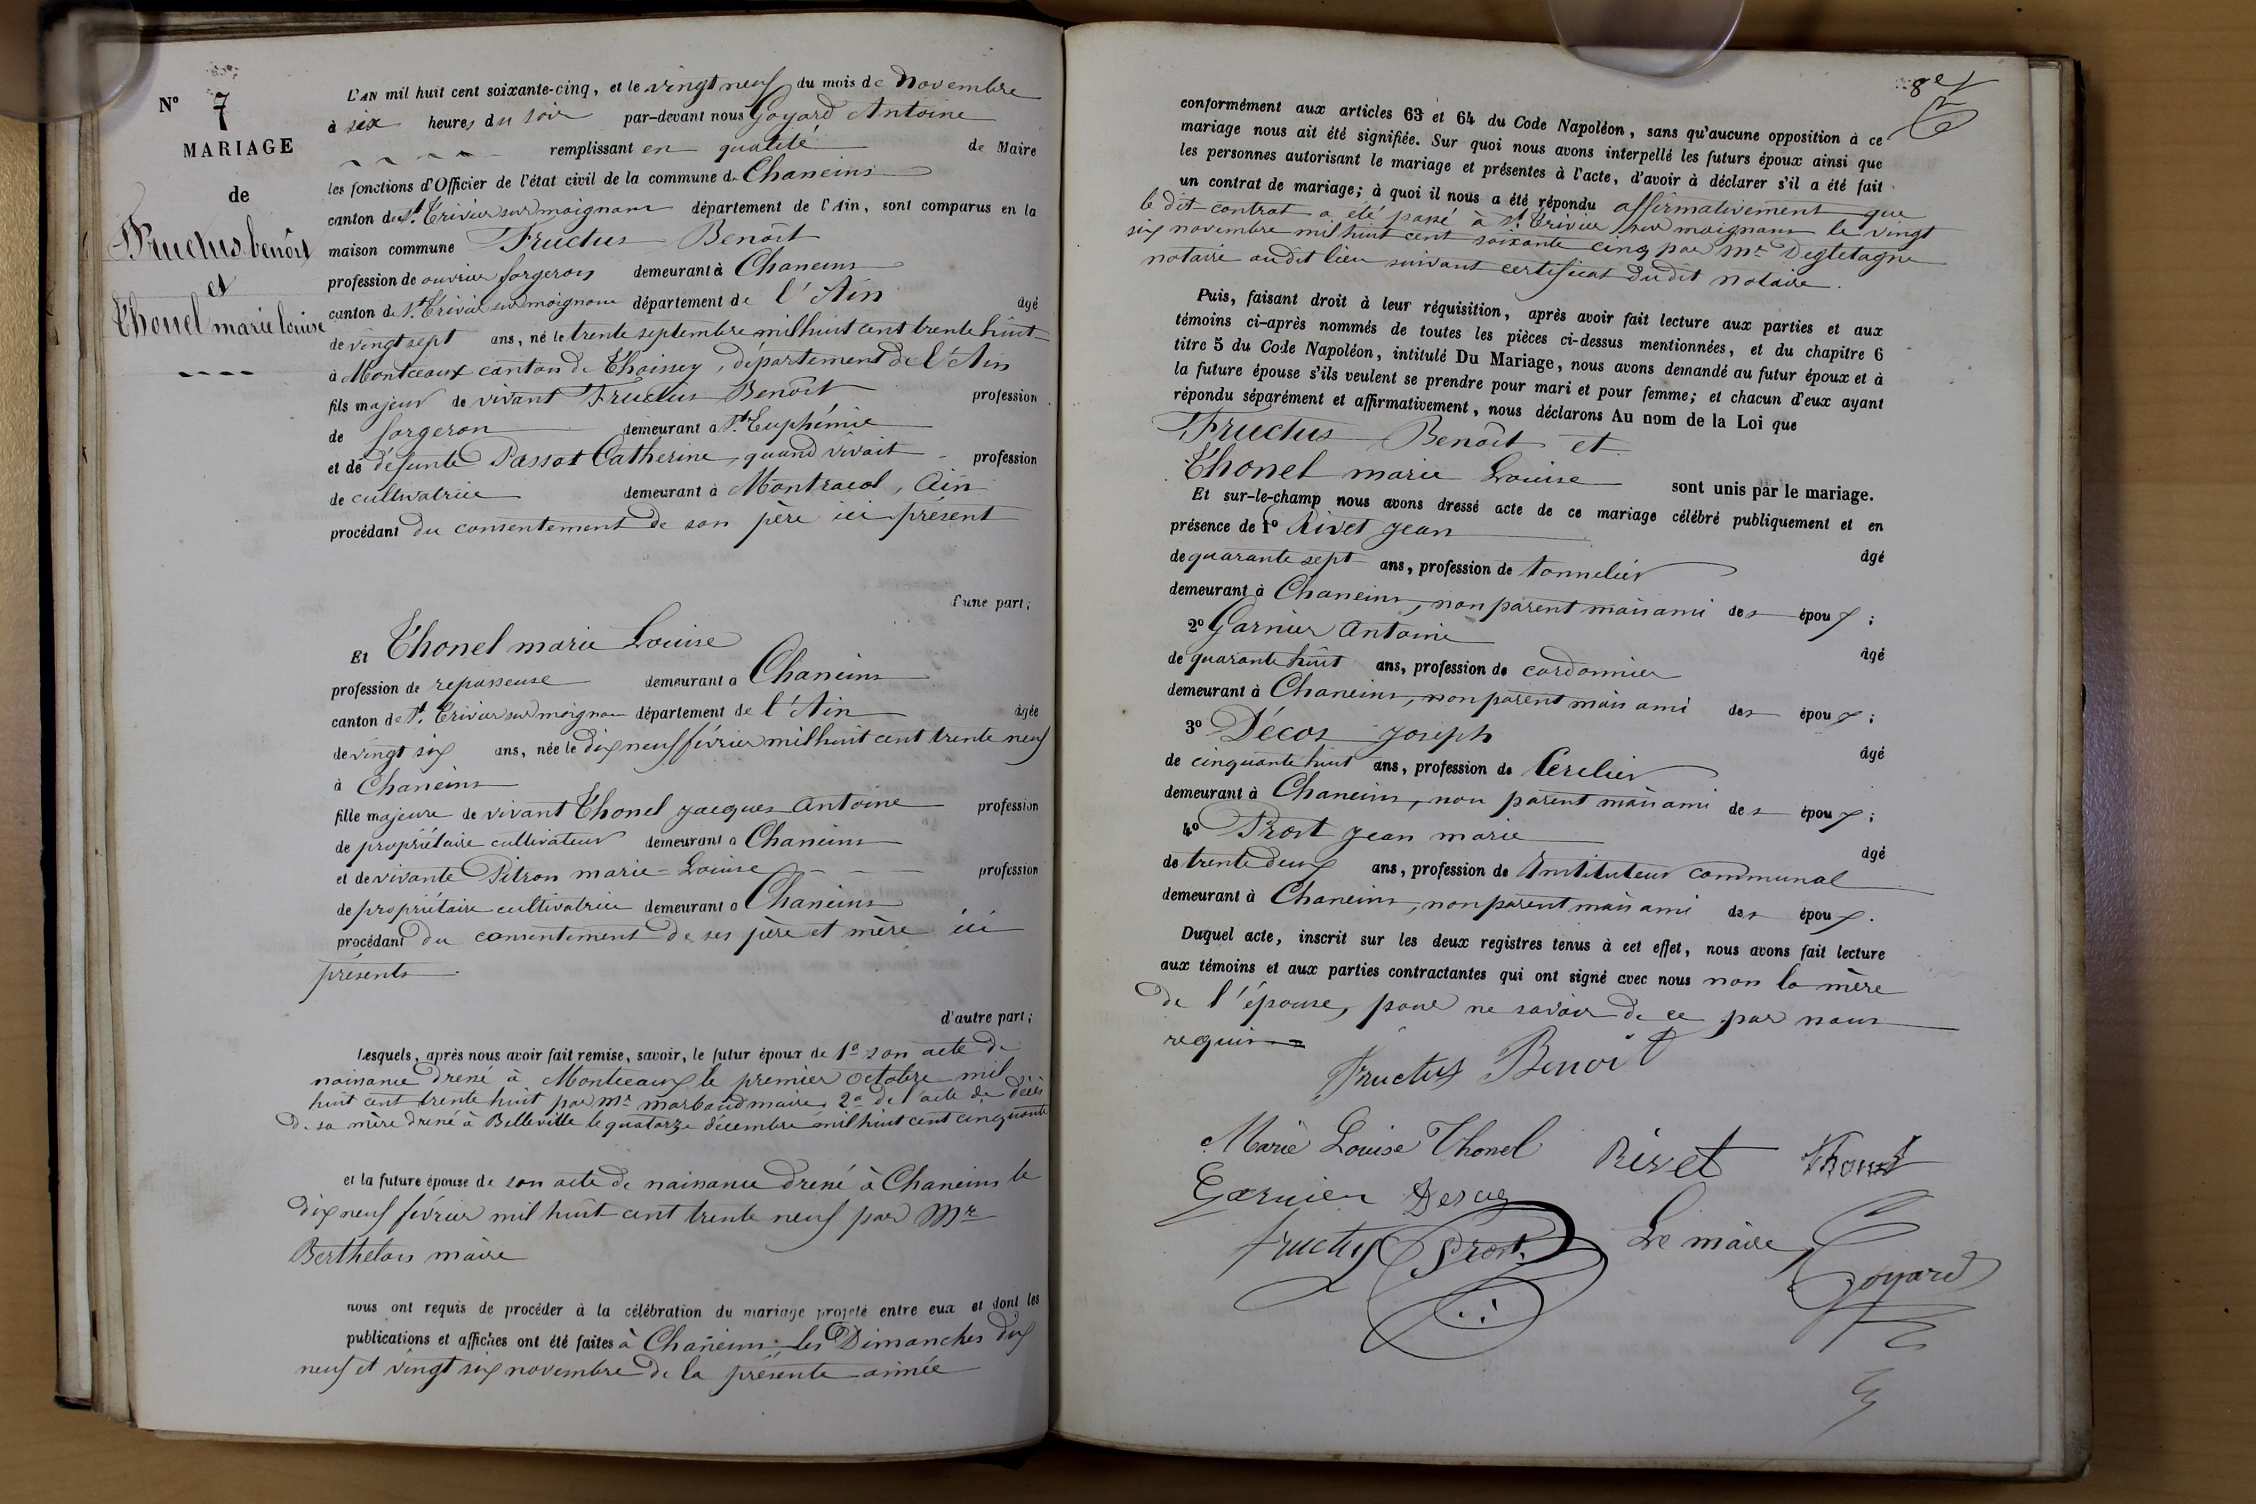 N° 7
MARIAGE
de
Fructus benôit
et
Thonel marie louise
L'AN mil huit cent soixante-cinq, et le vingt neuf du mois de Novembre
à six heures du soir par-devant nous Goyard Antoine
remplissant en qualité de Maire
les fonctions d'Officier de l'état civil de la commune de Chaneins
canton de St. Trivier sur moignans département de l'Ain, sont comparus en la
maison commune Fructus Benôit
profession de ouvrier forgeron demeurant à Chaneins
canton de St. Trivier sur moignans département de l'Ain âgé
de vingt sept ans, né le trente septembre mil huit cent trente huit
à Montceaux canton de Thoissey, département de l'Ain
fils majeur de vivant Fructus Benôit profession
de forgeron demeurant à Ste Euphémie
et de défunte Passot Catherine, quand vivait profession
de cultivatrice demeurant à Montracol, Ain
procédant du consentement de son père ici présent
d'une part;
Et Thonel marie Louise
profession de repasseuse demeurant à Chaneins
canton de St. Trivier sur moignans département de l'Ain âgée
de vingt six ans, née le dix neuf février mil huit cent trente neuf
à Chaneins
fille majeure de vivant Thonel jacques antoine profession
de propriétaire cultivateur demeurant à Chaneins
et de vivante Pitron marie-Louise profession
de propriétaire cultivatrice demeurant à Chaneins
procédant du consentement de ses père et mère ici
présents
d'autre part;
Lesquels, après nous avoir fait remise, savoir, le futur époux de 1° son acte de
naissance dressé à Montceaux le premier octobre mil
huit cent trente huit par Mr marbaud maire, 2° de l'acte de décès
de sa mère dressé à Belleville le quatorze décembre mil huit cent cinquante
et la future épouse de son acte de naissance dressé à Chaneins le
dix neuf février mil huit cent trente neuf par Mr
Berthelon maire
nous ont requis de procéder à la célébration du mariage projeté entre eux et dont les
publications et affiches ont été faites à Chaneins les Dimanches dix
neuf et vingt six novembre de la présente année
8e
conformément aux articles 63 et 64 du Code Napoléon, sans qu'aucune opposition à ce
mariage nous ait été signifiée. Sur quoi nous avons interpellé les futurs époux ainsi que
les personnes autorisant le mariage et présentes à l'acte, d'avoir à déclarer s'il a été fait
un contrat de mariage; à quoi il nous a été répondu affirmativement que
le dit contrat a été passé à St. Trivier sur moignans le vingt
six novembre mil huit cent soixante cinq par Mr Degletagne
notaire au dit lieu suivant certificat du dit notaire.
Puis, faisant droit à leur réquisition, après avoir fait lecture aux parties et aux
témoins ci-après nommés de toutes les pièces ci-dessus mentionnées, et du chapitre 6
titre 5 du Code Napoléon, intitulé Du Mariage, nous avons demandé au futur époux et à
la future épouse s'ils veulent se prendre pour mari et pour femme; et chacun d'eux ayant
répondu séparément et affirmativement, nous déclarons Au nom de la Loi que
Fructus Benôit et
Thonel marie Louise sont unis par le mariage.
Et sur-le-champ nous avons dressé acte de ce mariage célébré publiquement et en
présence de 1° Rivet jean âgé
de quarante sept ans, profession de tonnelier
demeurant à Chaneins, non parent mais ami des époux;
2° Garnier antoine âgé
de quarante huit ans, profession de cordonnier
demeurant à Chaneins, non parent mais ami des époux;
3° Décos joseph âgé
de cinquante huit ans, profession de
demeurant à Chaneins, non parent mais ami des époux;
4° Prost jean marie âgé
de trente deux ans, profession de Instituteur communal
demeurant à Chaneins, non parent mais ami des époux.
Duquel acte, inscrit sur les deux registres tenus à cet effet, nous avons fait lecture
aux témoins et aux parties contractantes qui ont signé avec nous non la mère
de l'épouse, pour ne savoir de ce par nous
requis
Fructus Benoit
Marie Louise Thonel Rivet Thonel
Garnier Descos
fructus Prost Le maire
Goyard